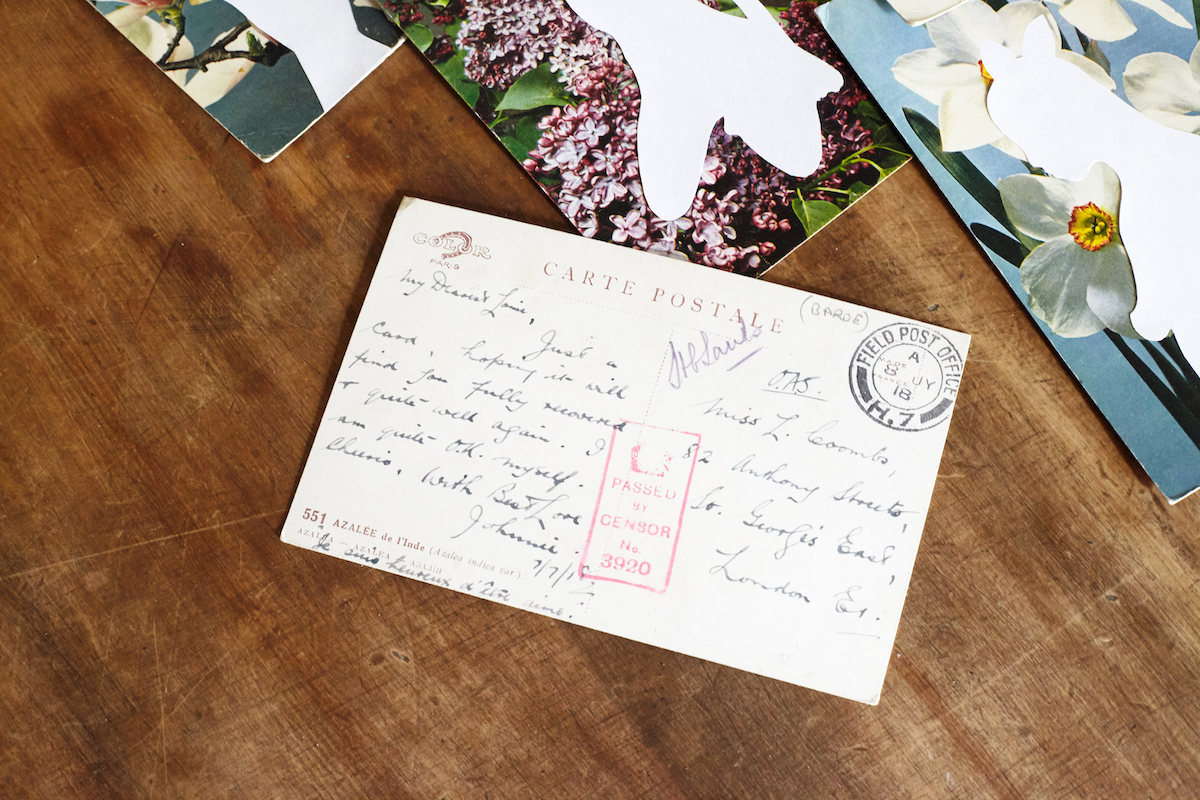 COLOR
PARIS
CARTE POSTALE
(BARDE)
My Dearest
Just a
card, hoping it will
find you fully recovered
& quite well again. I
am quite O.K. myself.
Cheerio.
With Best Love
Johnnie.
7/7/18
551 AZALÉE de l'Inde (Azalea indica var.).
AZALEA - AZALEA
Je suis heureux d'être aimé!
O.A.S.
Miss L. Coombs,
82 Anthony Street,
St. George's East,
London E1.
FIELD POST OFFICE
A
8 JY
18
H.7
MADE
PASSED
BY
CENSOR
No.
3920